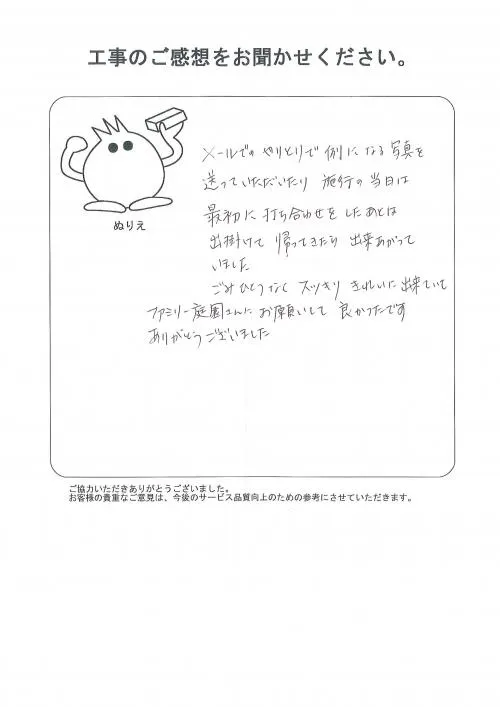 工事のご感想をお聞かせください。
メールでのやりとりで例になる写真を
送っていただいたり 施行の当日は
最初に打ち合わせをしたあとは
出掛けて 帰ってきたら 出来あがって
いました
ごみひとつなく スッキリ きれいに出来ていて
ファミリー庭園さんにお願いして 良かったです
ありがとうございました
ぬりえ
ご協力いただきありがとうございました。
お客様の貴重なご意見は、今後のサービス品質向上のための参考にさせていただきます。